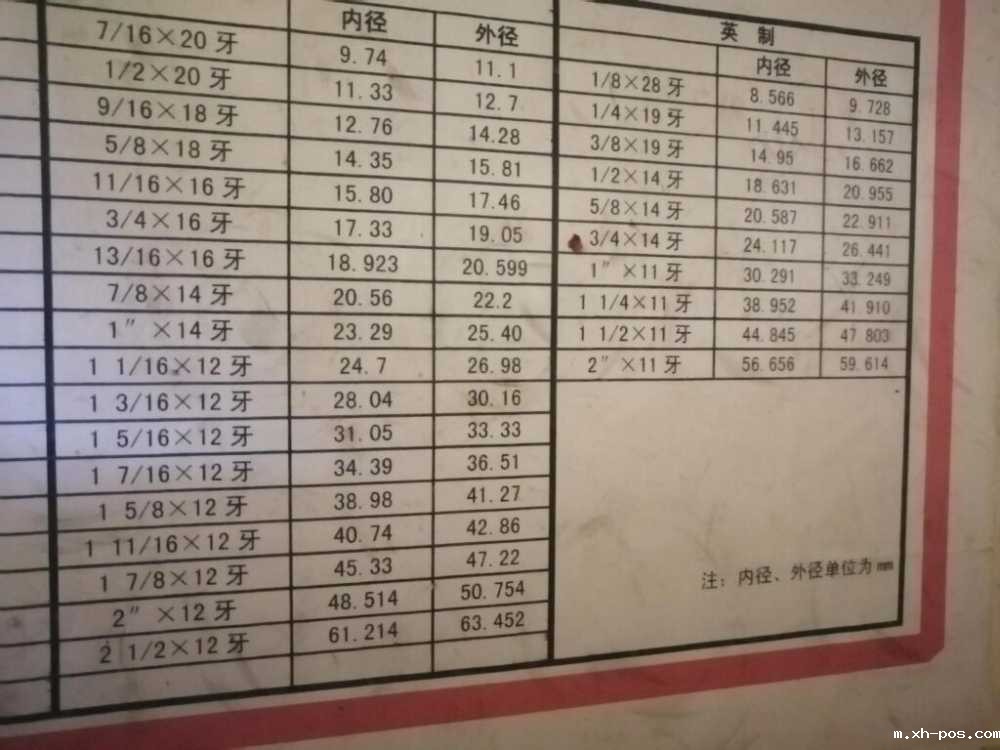 内径 外径
7/16×20 牙 9.74 11.1
1/2×20 牙 11.33 12.7
9/16×18 牙 12.76 14.28
5/8×18 牙 14.35 15.81
11/16×16 牙 15.80 17.46
3/4×16 牙 17.33 19.05
13/16×16 牙 18.923 20.599
7/8×14 牙 20.56 22.2
1″ ×14 牙 23.29 25.40
1 1/16×12 牙 24.7 26.98
1 3/16×12 牙 28.04 30.16
1 5/16×12 牙 31.05 33.33
1 7/16×12 牙 34.39 36.51
1 5/8×12 牙 38.98 41.27
1 11/16×12 牙 40.74 42.86
1 7/8×12 牙 45.33 47.22
2″ ×12 牙 48.514 50.754
2 1/2×12 牙 61.214 63.452
英 制
内径 外径
1/8×28 牙 8.566 9.728
1/4×19 牙 11.445 13.157
3/8×19 牙 14.95 16.662
1/2×14 牙 18.631 20.955
5/8×14 牙 20.587 22.911
3/4×14 牙 24.117 26.441
1″ ×11 牙 30.291 33.249
1 1/4×11 牙 38.952 41.910
1 1/2×11 牙 44.845 47.803
2″ ×11 牙 56.656 59.614
注：内径、外径单位为 mm
m.xh-pos.com